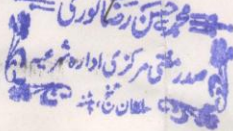 محمد حسن رضا نوری
صدر مفتی مرکزی ادارہ شرعیہ
سلطان گنج، پٹنہ